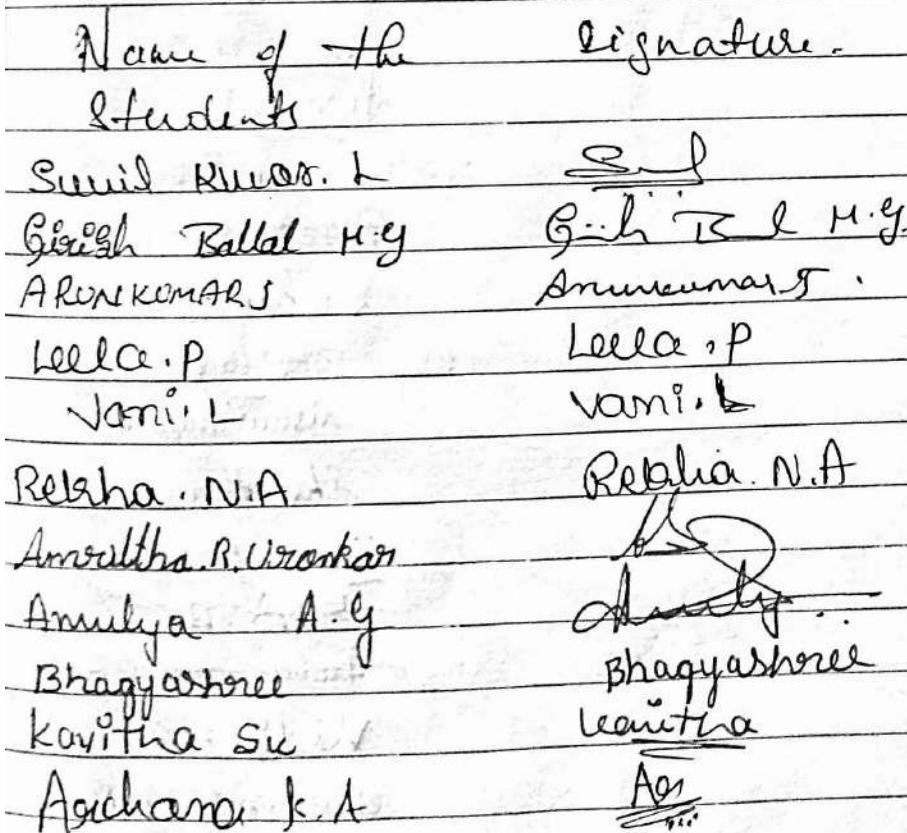 Name of the Signature.
Students
Sunil Kumar. L
Girish Ballal M.G M.G.
ARUNKUMAR J Arunkumar J.
Leela.P Leela.P
Vani.L Vani.L
Rekha.N.A Rekha.N.A
Amrultha.R.Uronkar
Amulya A.G Amulya
Bhagyashree Bhagyashree
Kavitha Sk Kavitha
Archana K.A